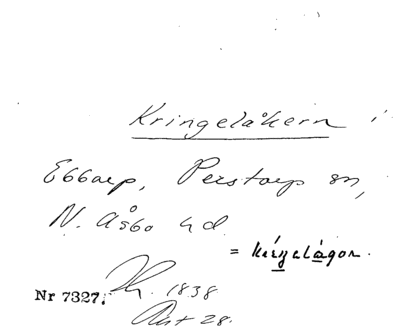 Kringelåkern i
Ebbarp, Perstorp sn,
N. Åsbo hd.
= kringelågor.
Nr 7327. 1838
Akt 28.